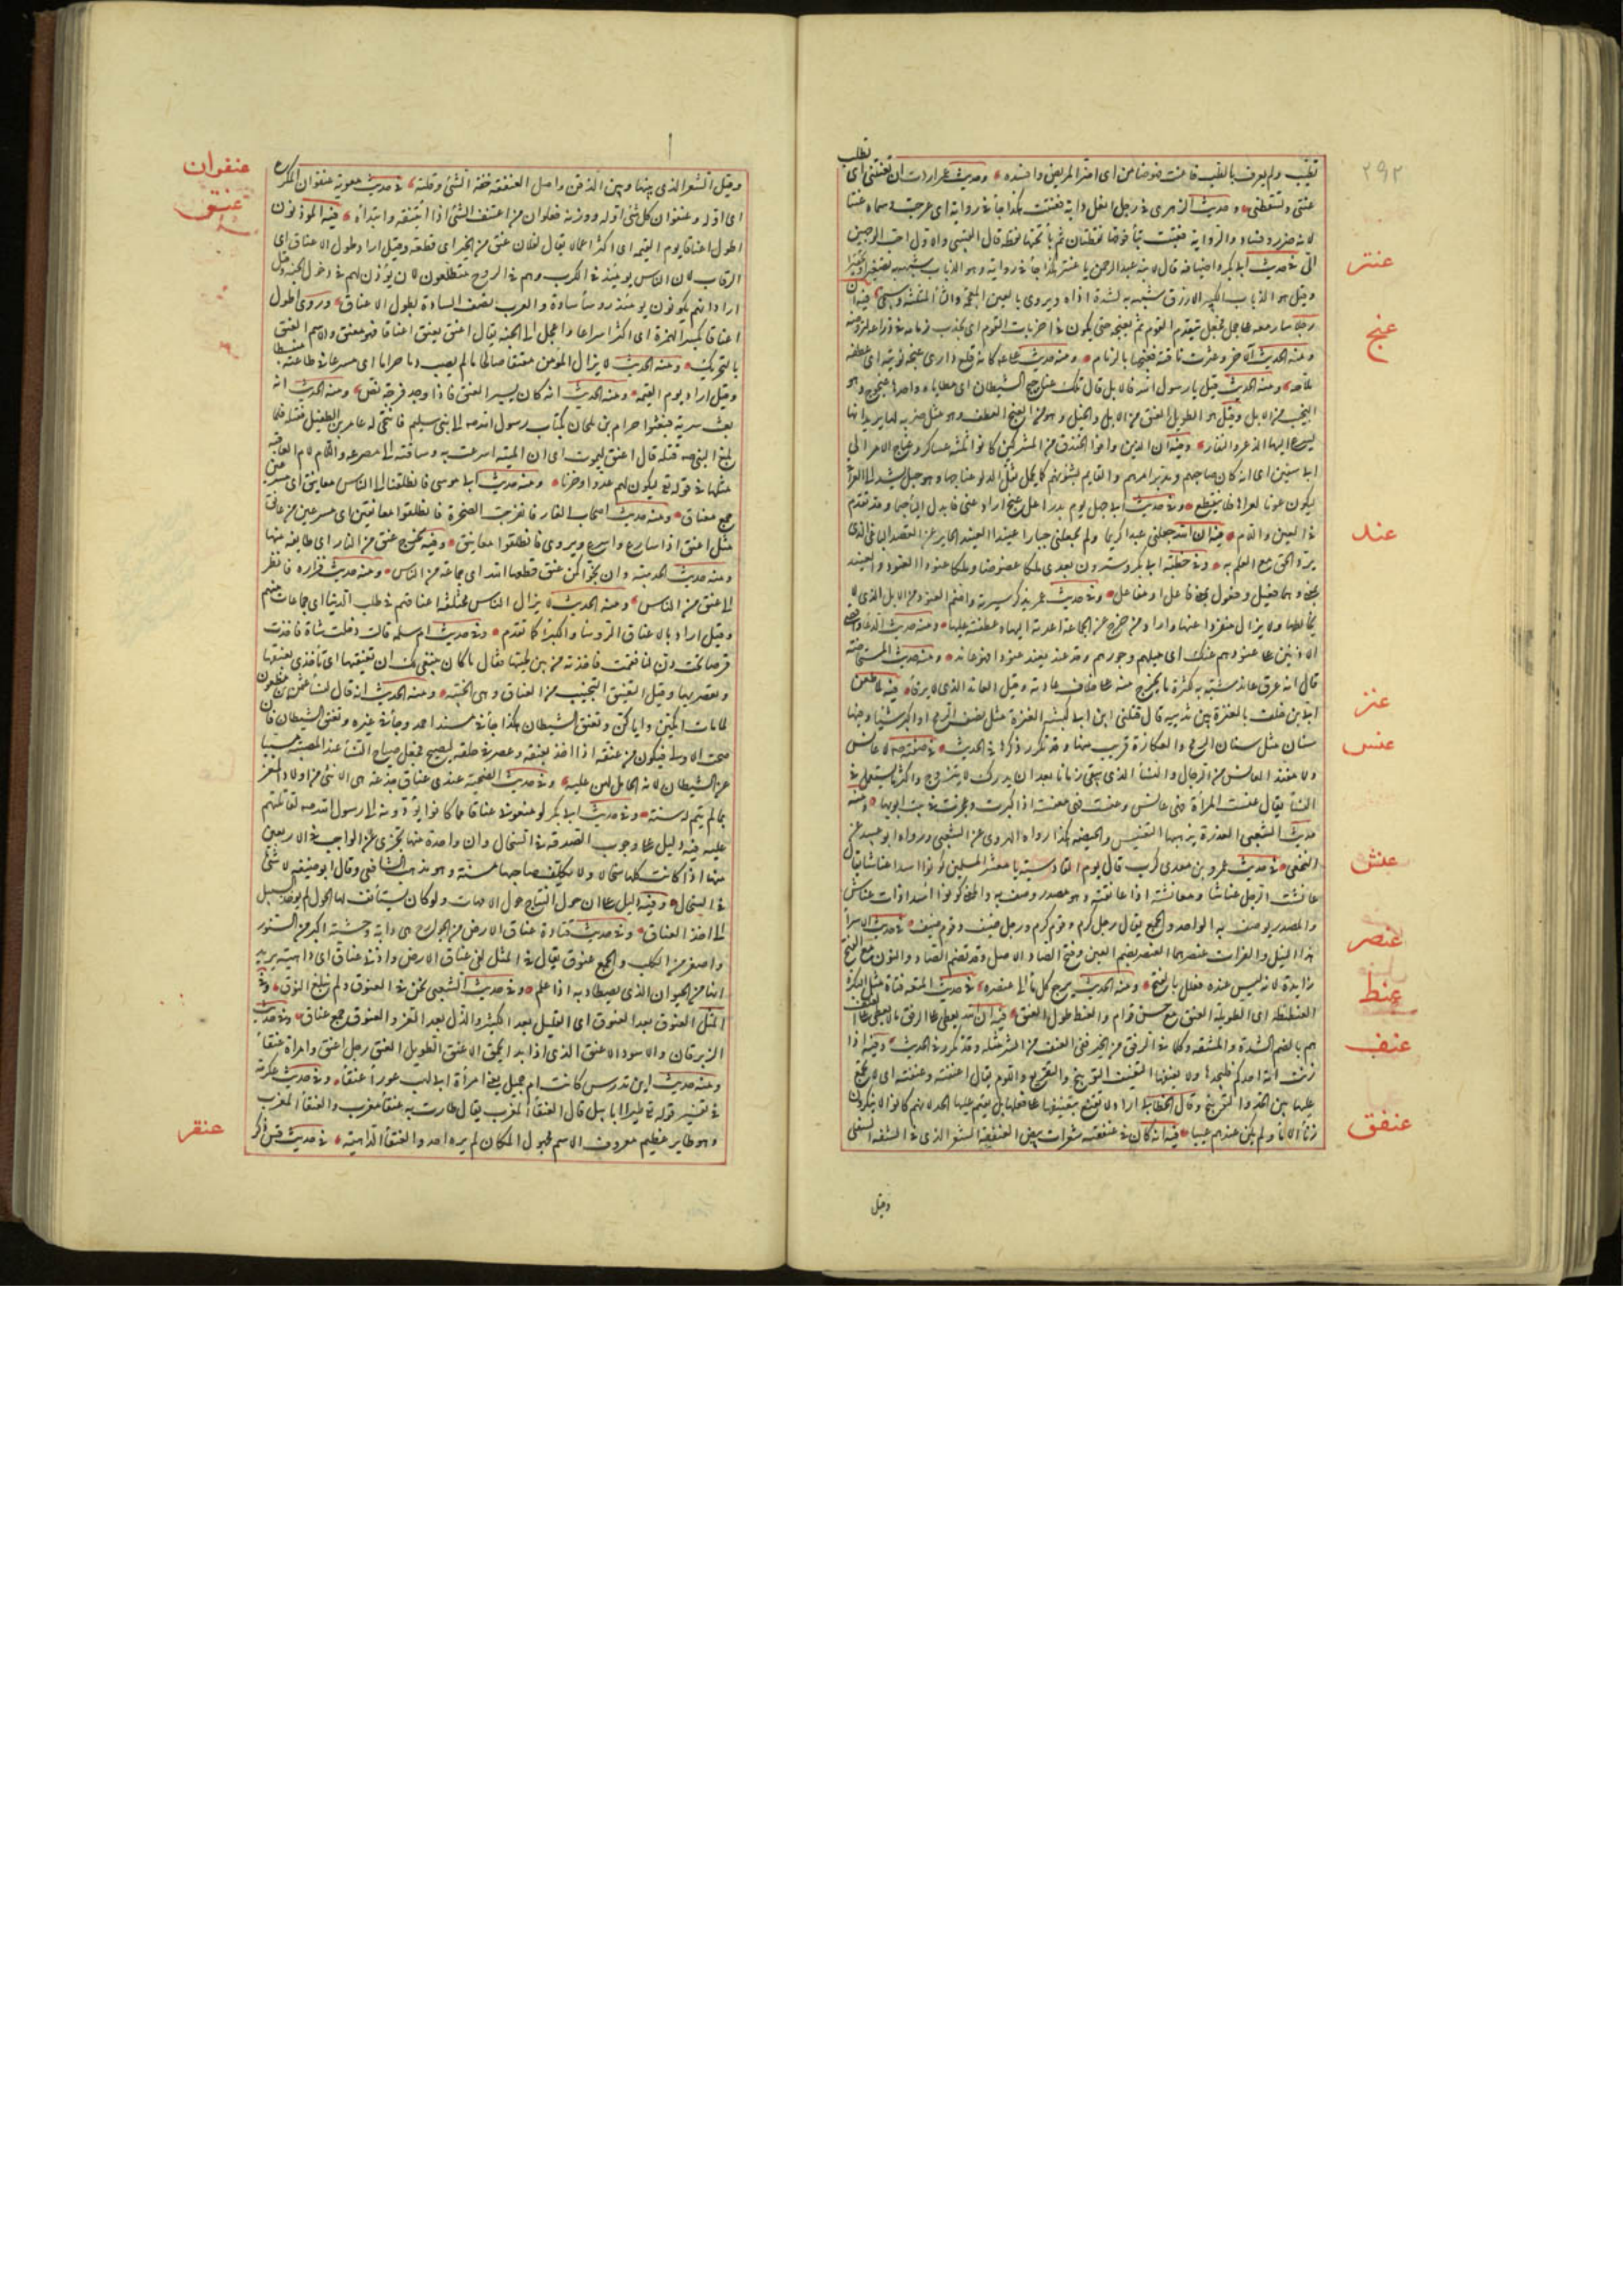 ٢٩٢
تطبّب ولم يعرف بالطب فاعنت فهو ضامن اى اضر المريض وافسده وحديث عمر اردت ان تعنتنى اى تطلب
عنتى وتسقطنى وحديث الزهرى فى رجل انعل دابة فعنتت هكذا جاء فى رواية اى عرجت وسماه عنتا
لانه ضرر وفساد والرواية فعتبت بتاء فوقها نقطتان ثم باء تحتها نقطة قال القتيبى والاول احب الوجهين
الىّ فى حديث ابى بكر واضيافه قال لابنه عبد الرحمن يا عنتر هكذا جاء فى رواية وهو الذباب شبهه به تصغيرا وتحقيرا
عنتر
وقيل هو الذباب الكبير الازرق شبهه به لشدة اذاه ويروى بالغين المعجمة والثاء المثلثة وسيجئ فيه ان
رجلا سار معه على جمل فجعل يتقدم القوم ثم يعنجه حتى يكون فى اخريات القوم اى يجذب زمامه
عنج
ومنه الحديث الآخر وعثرت ناقته فعنجها بالزمام ومنه حديث على كانه قلع دارى عنجه نوتيه اى عطفه
ملاحه ومنه الحديث قيل يا رسول الله فالابل قال تلك عناجيج الشياطين اى مطاياها واحدها عنجوج وهو
النجيب من الابل وقيل هو الطويل العنق من الابل والخيل وهو من العنج العطف وهو مثل ضربه لها يريد انها
يسرع اليها الذعر والنفار وفيه ان الذين وافوا الخندق من المشركين كانوا ثلثة عساكر وعناج الامر الى
ابى سفين اى انه كان صاحبهم ومدبر امرهم والقايم بشؤنهم كما يحمل ثقل الدلو عناجها وهو حبل يشد
ليكون عونا لعراها فلا ينقطع وفى حديث ابى جهل يوم بدر اعل عنج اراد عنى فابدل الياء جيما وقد تقدم
فى العين واللام فيه ان الله جعلنى عبدا كريما ولم يجعلنى جبارا عنيدا العنيد الجاير عن القصد الباغى الذى
عند
يرد الحق مع العلم به وفى خطبة ابى بكر وسترون بعدى ملكا عضوضا وملكا عنودا العنود والعنيد
بمعنى وهما فعيل وفعول بمعنى فاعل او مفاعل وفى حديث عمر يذكر سيرته واضم العنود من الابل الذى لا
يخالطها ولا يزال منفردا عنها واراد من خرج عن الجماعة اعدته اليها وعطفته عليها ومنه حديث الدعاء
الادنين على عنودهم عنك اى ميلهم وجورهم وقد عند يعند عنودا فهو عاند ومنه حديث المستحاضة
قال انه عرق عاند شبه به لكثرة ما يخرج منه على خلاف عادته وقيل العاند الذى لا يرقأ فيه لما طعن
ابى بن خلف بالعنزة بين ثدييه قال قتلنى ابن ابى كبشة العنزة مثل نصف الرمح او اكبر شيئا وفيها
عنز
سنان مثل سنان الرمح والعكازة قريب منها وقد تكرر ذكرها فى الحديث فى صفته صم لا عانس
عنس
ولا مفند العانس من الرجال والنساء الذى يبقى زمانا بعد ان يدرك لا يتزوج واكثر ما يستعمل فى
النساء يقال عنست المرأة فهى عانس وعنست فهى معنسة اذا كبرت وعجزت فى بيت ابويها ومنه
حديث الشعبى العذرة يذهبها التعنيس والحيضة هكذا رواه الهروى عن الشعبى ورواه ابو عبيد عن
النخعى فى حديث عمرو بن معدى كرب قال يوم القادسية يا معشر المسلمين كونوا اسدا عناشا يقال
عنش
عانشت الرجل عناشا ومعانشة اذا عانقته وهو مصدر وصف به والمعنى كونوا اسدا ذات عناش
والمصدر يوصف به الواحد والجمع يقال رجل كرم وقوم كرم ورجل ضيف وقوم ضيف فى حديث الاسراء
هذا النيل والفرات عنصرهما العنصر بضم العين وفتح الصاد الاصل وقد تضم الصاد والنون مع الفتح
عنصر
زايدة لانه ليس عنده فعلل بالفتح ومنه الحديث يرجع كل ماء الى عنصره فى حديث المتعة فتاة مثل البكرة
عنط
العنطنطة اى الطويلة العنق مع حسن قوام والعنط طول العنق فيه ان الله يعطى على الرفق ما لا يعطى على العنف
عنف
هو بالضم الشدة والمشقة وكلما فى الرفق من الخير ففى العنف من الشر مثله وقد تكرر فى الحديث وفيه اذا
زنت امة احدكم فليجلدها ولا يعنفها التعنيف التوبيخ والتقريع واللوم يقال اعنفته وعنفته اى لا يجمع
عليها بين الحد والتوبيخ وقال الخطابى اراد لا تقنع بتعنيفها على فعلها بل يقيم عليها الحد لانهم كانوا لا ينكرون
زناء الاماء ولم يكن عندهم عيبا فيه انه كان فى عنفقته شعرات بيض العنفقة الشعر الذى فى الشفة السفلى
عنفق
وقيل
وقيل الشعر الذى بينها وبين الذقن واصل العنفقة خفة الشئ وقلته فى حديث معوية عنفوان المكرع
عنفوان
اى اوله وعنفوان كل شئ اوله ووزنه فعلوان من اعتنف الشئ اذا ائتنفه وابتدأه فيه المؤذنون
عنق
اطول اعناقا يوم القيمة اى اكثر اعمالا يقال لفلان عنق من الخير اى قطعة وقيل اراد طول الاعناق اى
الرقاب لان الناس يومئذ فى الكرب وهم فى الروح متطلعون لان يؤذن لهم فى دخول الجنة وقيل
اراد انهم يكونون يومئذ رؤساء سادة والعرب تصف السادة بطول الاعناق وروى اطول
اعناقا بكسر الهمزة اى اكثر اسراعا واعجل الى الجنة يقال اعنق يعنق اعناقا فهو معنق والاسم العنق
بالتحريك ومنه الحديث لا يزال المؤمن معنقا صالحا ما لم يصب دما حراما اى مسرعا فى طاعته منبسطا
وقيل اراد يوم القيمة ومنه الحديث انه كان يسير العنق فاذا وجد فرجة نص ومنه الحديث انه
بعث سرية فبعثوا حرام بن ملحان بكتاب رسول الله صم الى بنى سليم فانتحى له عامر بن الطفيل فقتله فلما
بلغ النبى صم قتله قال اعنق ليموت اى ان المنية اسرعت به وساقته الى مصرعه واللام لام العاقبة
مثلها فى قوله تع ليكون لهم عدوا وحزنا ومنه حديث ابى موسى فانطلقنا الى الناس معانيق اى مسرعين
جمع معناق ومنه حديث اصحاب الغار فانفرجت الصخرة فانطلقوا معانقين اى مسرعين من عانق
مثل اعنق اذا سارع واسرع ويروى فانطلقوا معانيق وفيه يخرج عنق من النار اى طايفة منها
ومنه حديث الحديبية وان نجوا تكن عنق قطعها الله اى جماعة من الناس ومنه حديث فزارة فانظر
الى عنق من الناس ومنه الحديث لا يزال الناس مختلفة اعناقهم فى طلب الدنيا اى جماعات منهم
وقيل اراد بالاعناق الرؤساء والكبراء كما تقدم وفى حديث ام سلمة قالت دخلت شاة فاخذت
قرصا تحت دن لنا فقمت فاخذته من بين لحييها فقال ما كان ينبغى لك ان تعنقيها اى تأخذى بعنقها
وتعصريها وقيل التعنيق التخييب من العناق وهى الخيبة ومنه الحديث انه قال لنساء عثمن بن مظعون
لما مات ابكين واياكن وتعنق الشيطان هكذا جاء فى مسند احمد وجاء فى غيره ونعيق الشيطان فان
صحت الاولى فيكون من عنقه اذا اخذ بعنقه وعصر فى حلقه ليصيح فجعل صياح النساء عند المصيبة مسببا
عن الشيطان لانه الحامل لهن عليه وفى حديث الضحية عندى عناق جذعة هى الانثى من اولاد المعز
ما لم يتم له سنة وفى حديث ابى بكر لو منعونى عناقا مما كانوا يؤدونه الى رسول الله صم لقاتلتهم
عليه فيه دليل على وجوب الصدقة فى السخال وان واحدة منها تجزى عن الواجب فى الاربعين
منها اذا كانت كلها سخالا ولا يكلف صاحبها مسنة وهو مذهب الشافعى وقال ابو حنيفة لا شئ
فى السخال وفيه دليل على ان حول النتاج حول الامهات ولو كان يستأنف لها الحول لم يوجد السبيل
الى اخذ العناق وفى حديث قتادة عناق الارض من الجوارح هى دابة وحشية اكبر من السنور
واصغر من الكلب والجمع عنوق يقال فى المثل لقى عناق الارض واذنى عناق اى داهية يريد
انها من الحيوان الذى يصطاد به اذا علم وفى حديث الشعبى نحن فى العنوق ولم نبلغ النوق وفى
المثل العنوق بعد النوق اى القليل بعد الكثير والذل بعد العز والعنوق جمع عناق وفى حديث
الزبرقان والاسود الاعنق الذى اذا بدا يحمق الاعنق الطويل العنق رجل اعنق وامراة عنقاء
ومنه حديث ابن تدرس كانت ام جميل يعنى امرأة ابى لهب عوراء عنقاء وفى حديث عكرمة
فى تفسير قوله تع طيرا ابابيل قال العنقاء المغرب يقال طارت به عنقاء مغرب والعنقاء المغرب
وهو طاير عظيم معروف الاسم مجهول المكان لم يره احد والعنقاء الداهية فى حديث قس ذكر
عنقر